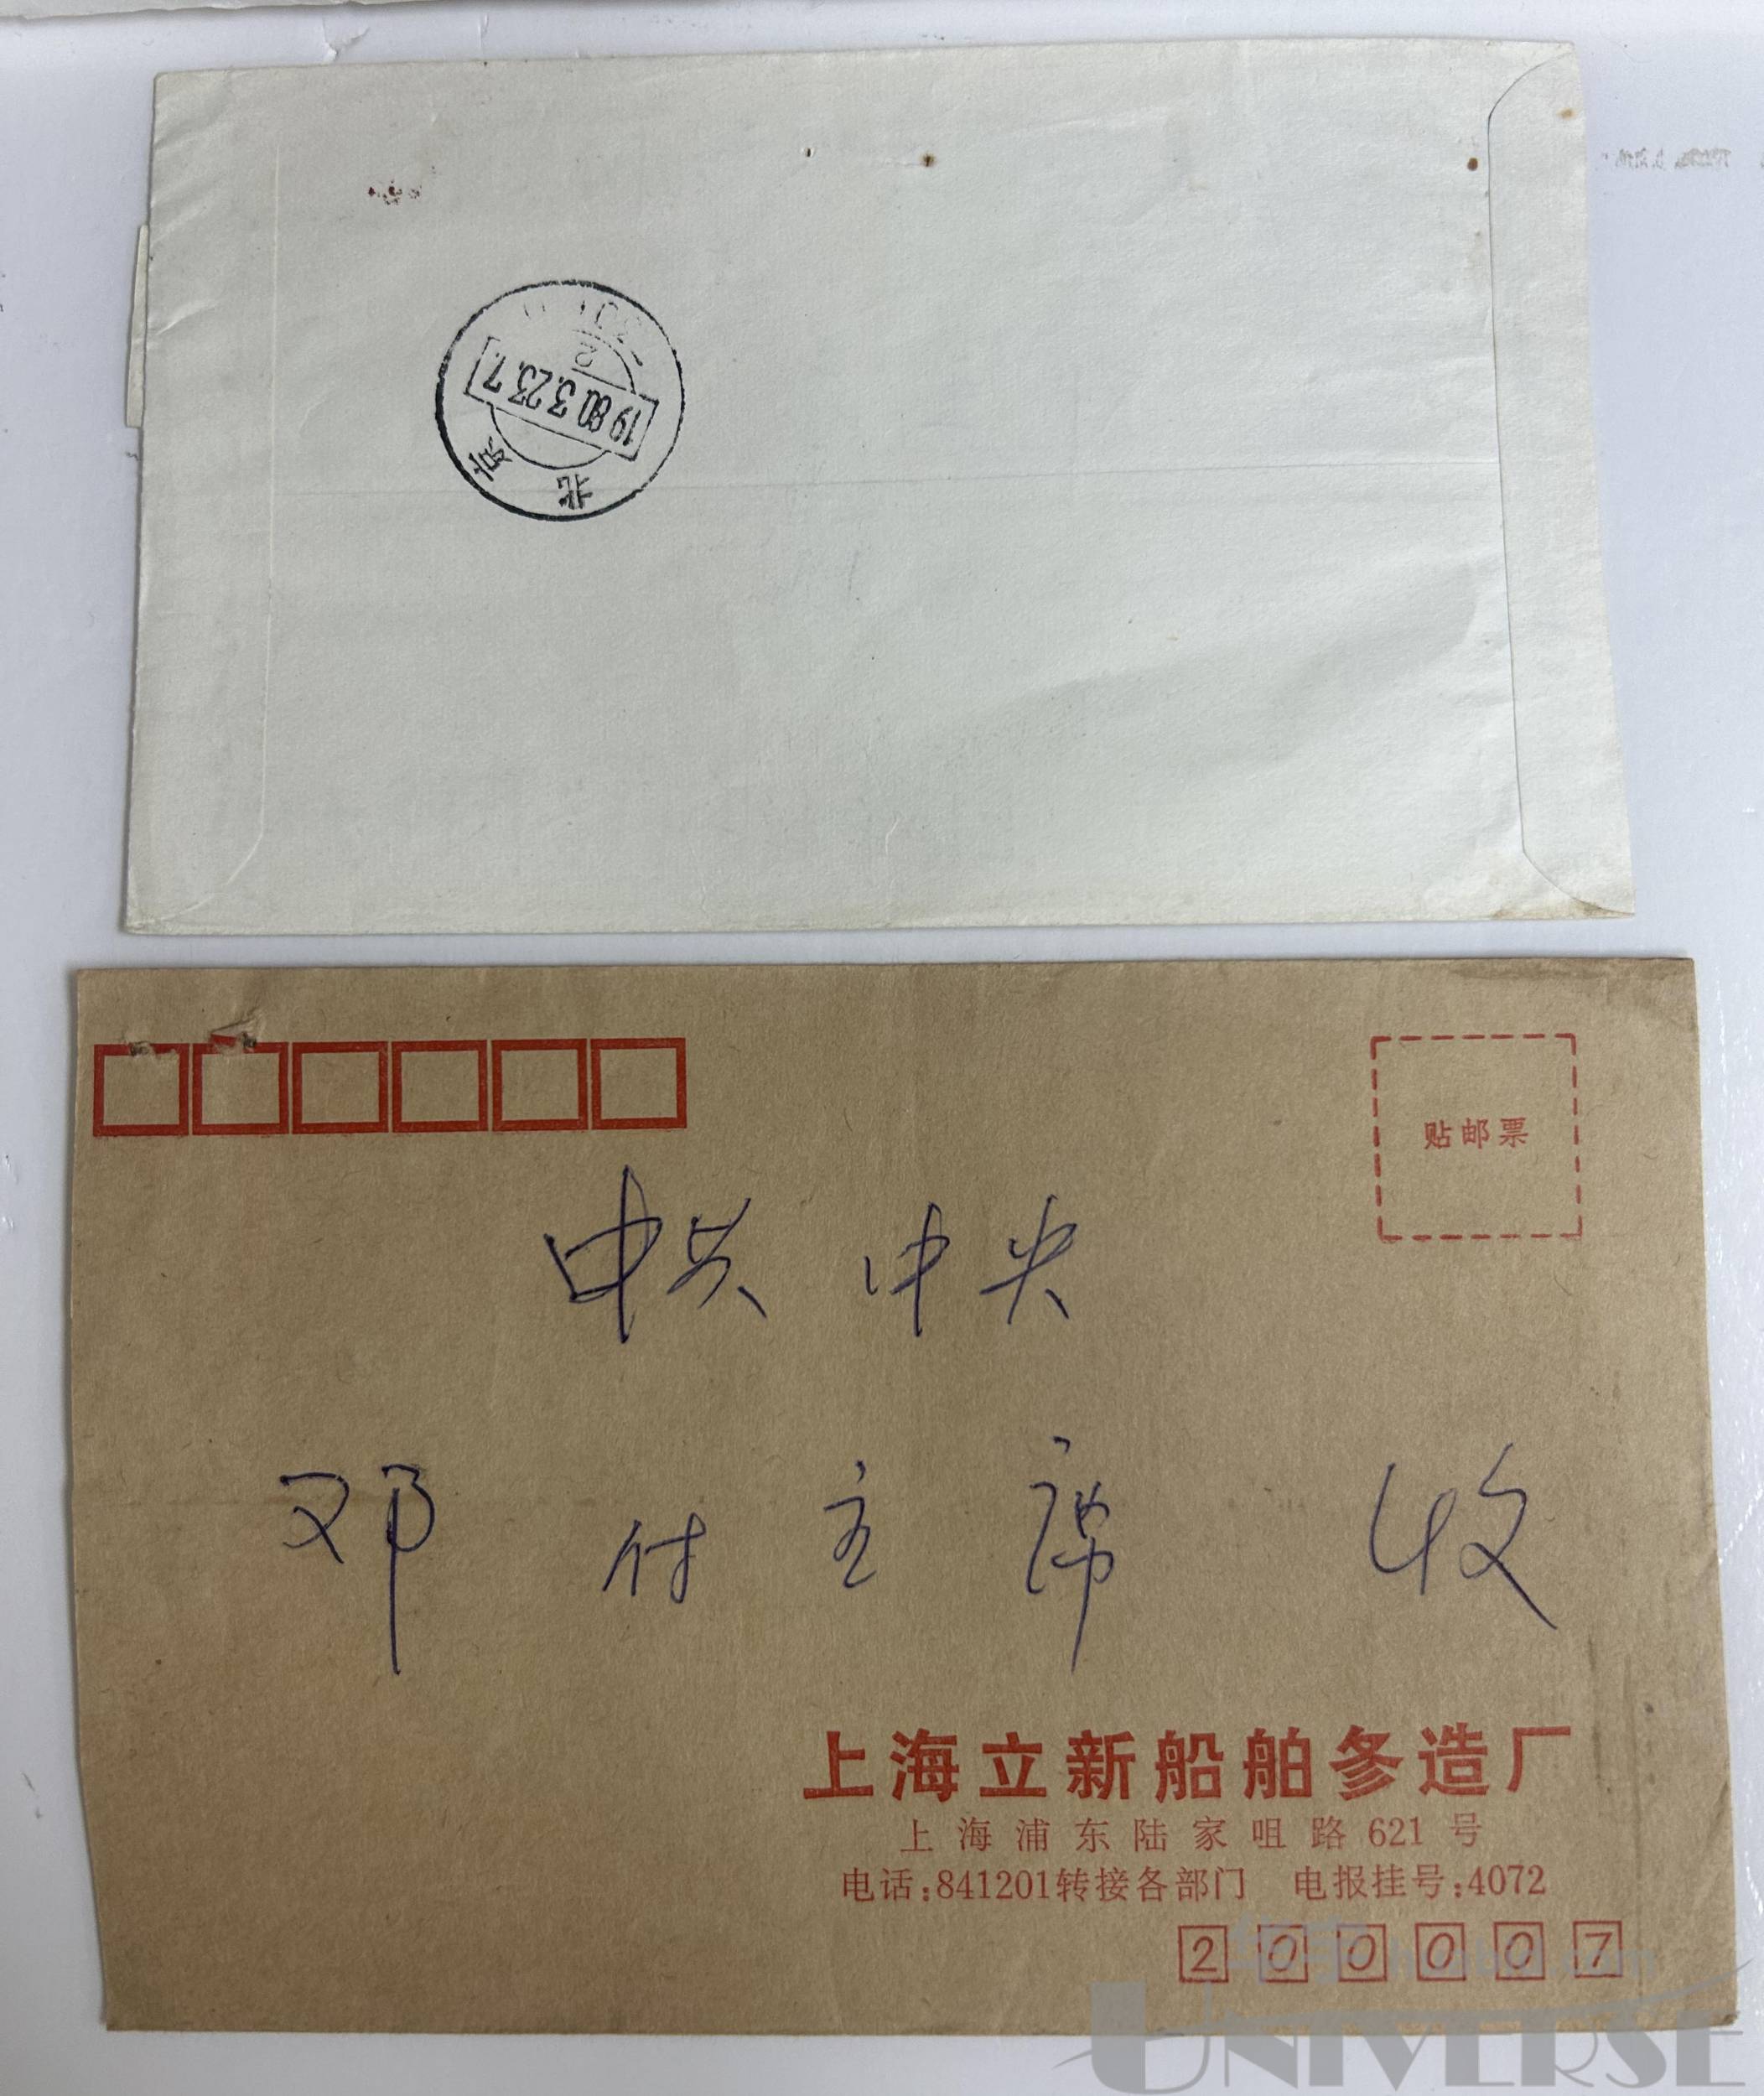 北京
1980.3.23.7
2
贴邮票
中共中央
邓付主席 收
上海立新船舶修造厂
上海浦东陆家咀路621号
电话:841201转接各部门 电报挂号:4072
200007
UNIVERSE